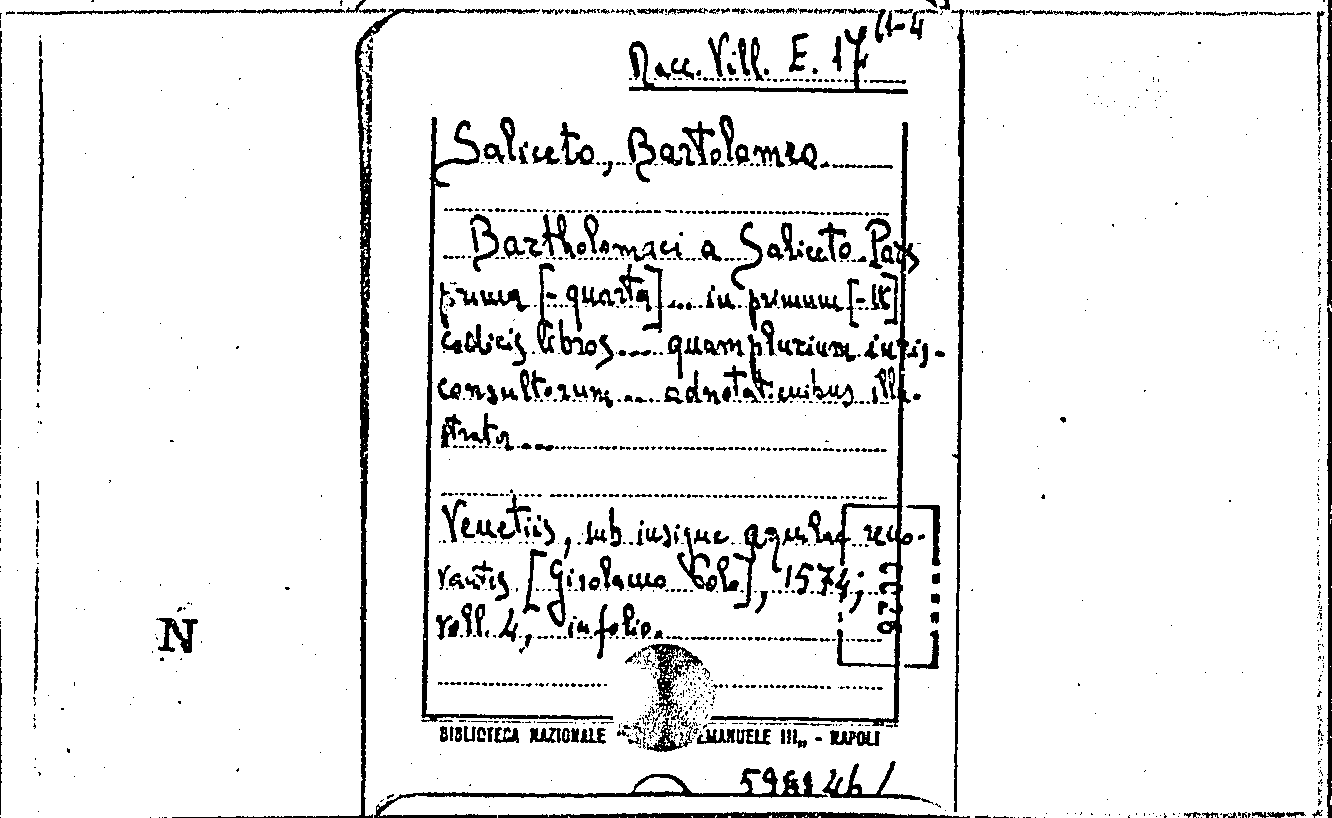 Racc. Vill. E. 17 (1-4
Saliceto, Bartolomeo
Bartholomaei a Saliceto Pars
prima [-quarta] ... in primum [-IX]
codicis libros ... quamplurium iuris-
consultorum ... adnotationibus illu-
strata ...
Venetiis, sub insigne aquilae reno-
vantis [Girolamo Polo], 1574;
voll. 4, in folio.
N
BIBLIOTECA NAZIONALE " EMANUELE III„ - NAPOLI